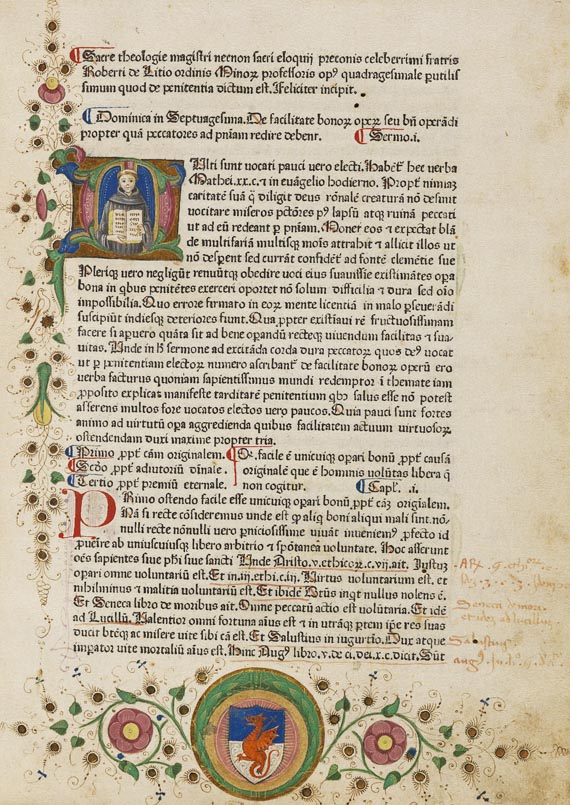 Sacre theologie magistri necnon sacri eloquij preconis celeberrimi fratris
Roberti de Litio ordinis Minorꝝ professoris opꝰ quadragesimale ꝑutilis
simum quod de penitentia dictum est. Feliciter incipit.
Dominica in Septuagesima. De facilitate bonorꝝ operꝝ seu bn̄ operādi
propter quā peccatores ad pn̄iam redire debent. Sermo.i.
MUlti sunt vocati pauci vero electi. Habēt̉ hec verba
Mathei.xx.c. ⁊ in euāgelio hodierno. Propt̉ nimiaꝫ
caritatē suā q̄ diligit deus rōnalē creaturā nō desinit
vocitare miseros pctōres ꝑꝰ lapsū atqꝫ ruinā peccati
ut ad eū redeant ꝑ pn̄iam. Monet eos ⁊ expectat blā
de multifariā multisqꝫ mois attrahit ⁊ allicit illos ut
nō despent sed currāt confidēt̉ ad fontē clemētie sue
Pleriqꝫ vero negligūt renuūtqꝫ obedire voci eius suauissie existimātes oꝑa
bona in qbus penitētes exerceri oportet nō solum difficilia ⁊ dura sed oīo
impossibilia. Quo errore firmato in eorꝝ mente licentiā in malo ꝑseuerādi
suscipiūt indiesqꝫ deteriores fiunt. Qua ꝓpter existiaui rē fructuosissimam
facere si aꝑuero quāta sit ad bene oꝑandū recteqꝫ viuendum facilitas ⁊ sua
uitas. Unde in h̄ sermone ad excitāda corda dura peccatorꝝ quos deꝰ vocat
ut ꝑ penitentiam electorꝝ numero ascribant̉ de facilitate bonorꝝ operū ero
verba facturus quoniam sapientissimus mundi redemptor ī themate iam
ꝓposito explicat manifeste tarditatē penitentium qbꝰ salus esse nō potest
asserens multos fore vocatos electos vero paucos. Quia pauci sunt fortes
animo ad virtutū oꝑa aggredienda quibus facilitatem actuum virtuosorꝝ
ostendendam duxi maxime propter tria.
Primo ꝓpt̉ cām originalem.
Scd̄o ꝓpt̉ adiutoriū diuinale.
Tertio ꝓpt̉ premiū eternale.
Qr̄ facile ē unicuiqꝫ oꝑari bonū ꝓpt̉ causā
originalē que ē hominis volūtas libera q̄
non cogitur. Capl̄. .i.
PRimo ostendo facile esse unicuiqꝫ oꝑari bonū ꝓpt̉ cāꝫ origīalem.
Nā si recte cōsideremus unde est ꝙ aliq̄ boni aliqui mali sunt.nō
nulli recte nōnulli vero ꝑniciosissime viuāt inueniemꝰ ꝓfecto id
ꝓueīre ab uniuscuiusqꝫ libero arbitrio ⁊ spōtanea voluntate. Hoc asserunt
oēs sapientes siue phi siue sancti Unde Aristo.v.ethicorꝝ.c.vij.ait. Justuꝫ
oꝑari omne voluntariū est. Et in.iij.ethi.c.iij. Virtus voluntarium est. et
nihilminus ⁊ malitia voluntariū est. Et ibidē Btūs inqt nullus nolens ē.
Et Seneca libro de moribus ait. Omne peccatū actio est volūtaria. Et idē
ad Lucillū. Valentior omni fortuna aīus est ⁊ in utrāqꝫ ꝑtem ip̄e res suas
ducit bt̄eqꝫ ac misere vite sibi cā est. Et Salustius in iugurtīo. Dux atque
imꝑator vite mortaliū aīus est. Hinc Augꝰ libro. v. de ci. dei.x.c.dicit. Sūt
Salustius